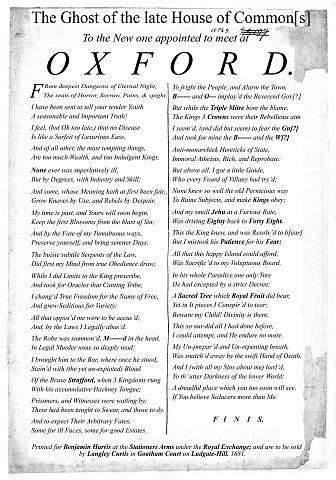 The Ghost of the late House of Common[s]
To the New one appointed to meet at
OXFORD.
From deepest Dungeons of Eternal Night,
The seats of Horror, Sorrow, Pains, & spight,
I have been sent to tell your tender Youth
A seasonable and Important Truth!
I feel, (but Oh too late,) that no Disease
Is like a Surfeit of Luxurious Ease,
And of all other, the most tempting things,
Are too much Wealth, and too Indulgent Kings.
None ever was superlatively ill,
But by Degrees, with Industry and Skill;
And some, whose Meaning hath at first been fair,
Grow Knaves by Use, and Rebels by Despair.
My time is past, and Yours will soon begin,
Keep the first Blossoms from the blast of Sin;
And by the Fate of my Tumultuous ways,
Preserve yourself, and bring serener Days.
The buisie subtile Serpents of the Law,
Did first my Mind from true Obedience draw;
While I did Limits to the King prescribe,
And took for Oracles that Canting Tribe,
I chang'd True Freedom for the Name of Free,
And grew Seditious for Variety;
All that oppos'd me were to be accus'd;
And, by the Laws I Legally abus'd.
The Robe was summon'd, M------d in the head,
In Legal Murder none so deeply read;
I brought him to the Bar, where once he stood,
Stain'd with (the yet un-expiated) Blood
Of the Brave Strafford, when 3 Kingdoms rung
With his accumulative Hackney Tongue;
Prisoners, and Witnesses were waiting by;
These had been taught to Swear, and those to dy.
And to expect Their Arbitrary Fates,
Some for ill Faces, some for good Estates.
To fright the People, and Alarm the Town,
B------ and O--- imploy'd the Reverend Gow[?]
But while the Triple Mitre bore the blame,
The Kings 3 Crowns were their Rebellious aim
I seem'd, (and did but seem) to fear the Gu[?]
And took for mine the B------ and the W[?]
Anti-monarchick Hereticks of State,
Immoral Atheists, Rich, and Reprobate:
But above all, I got a little Guide,
Who every Foard of Villany had try'd;
None knew so well the old Pernicious way
To Ruine Subjects, and make Kings obey;
And my small Jehu at a Furious Rate,
Was driving Eighty back to Forty Eight.
This the King knew, and was Resolv'd to b[ear]
But I mistook his Patience for his Fear;
All that this happy Island could afford,
Was Sacrific'd to my Voluptuous Board.
In his whole Paradice one only Tree
He had excepted by a strict Decree;
A Sacred Tree which Royal Fruit did bear,
Yet in It pieces I Conspir'd to tear;
Beware my Child! Divinity is there.
This so out-did all I had done before,
I could attempt, and He endure no more,
My Un-prepar'd and Un-repenting breath,
Was snatch'd away by the swift Hand of Death;
And I (with all my Sins about me) hurl'd,
To th' utter Darkness of the lower World;
A dreadful place which you too soon will see,
If you believe Seducers more than Me.
FINIS.
Printed for Benjamin Harris at the Stationers Arms under the Royal Exchange; and are to be sold
by Langley Curtis in Goatham Court on Ludgate-Hill. 1681.